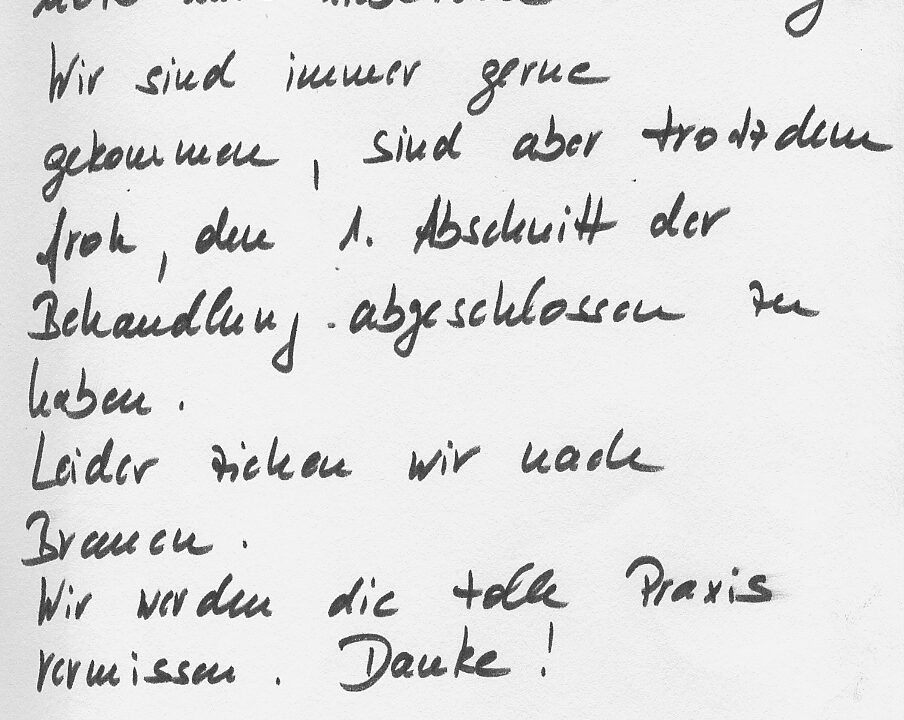 Wir sind immer gerne
gekommen, sind aber trotzdem
froh, den 1. Abschnitt der
Behandlung abgeschlossen zu
haben.
Leider ziehen wir nach
Bremen.
Wir werden die tolle Praxis
vermissen. Danke!